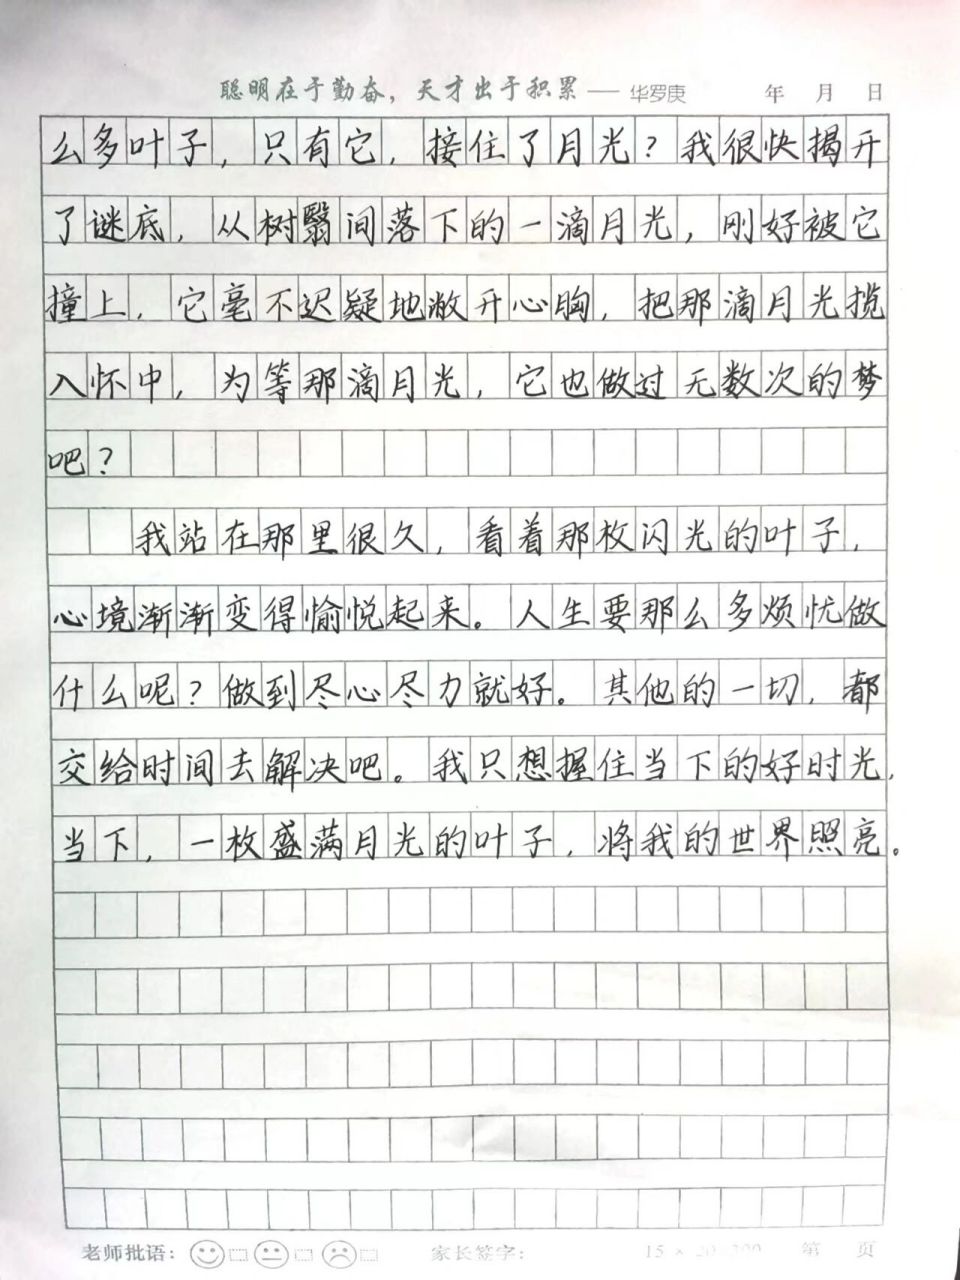 聪明在于勤奋，天才出于积累——华罗庚 年 月 日
么多叶子，只有它，接住了月光？我很快揭开
了谜底，从树翳间落下的一滴月光，刚好被它
撞上，它毫不迟疑地敞开心胸，把那滴月光揽
入怀中，为等那滴月光，它也做过无数次的梦
吧？
我站在那里很久，看着那枚闪光的叶子，
心境渐渐变得愉悦起来。人生要那么多烦忧做
什么呢？做到尽心尽力就好。其他的一切，都
交给时间去解决吧。我只想握住当下的好时光，
当下，一枚盛满月光的叶子，将我的世界照亮。
老师批语： 家长签字： 15×20=300 第 页